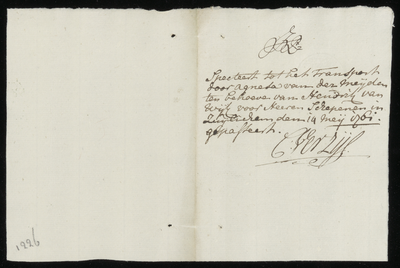 Specteert tot het transport
door agneta van der Meijden
ten behoeve van Hendrik van
Wijk voor Heeren Schepenen in
den 14 Meij 1761.
gepasseert.
C. Verzijl
1226